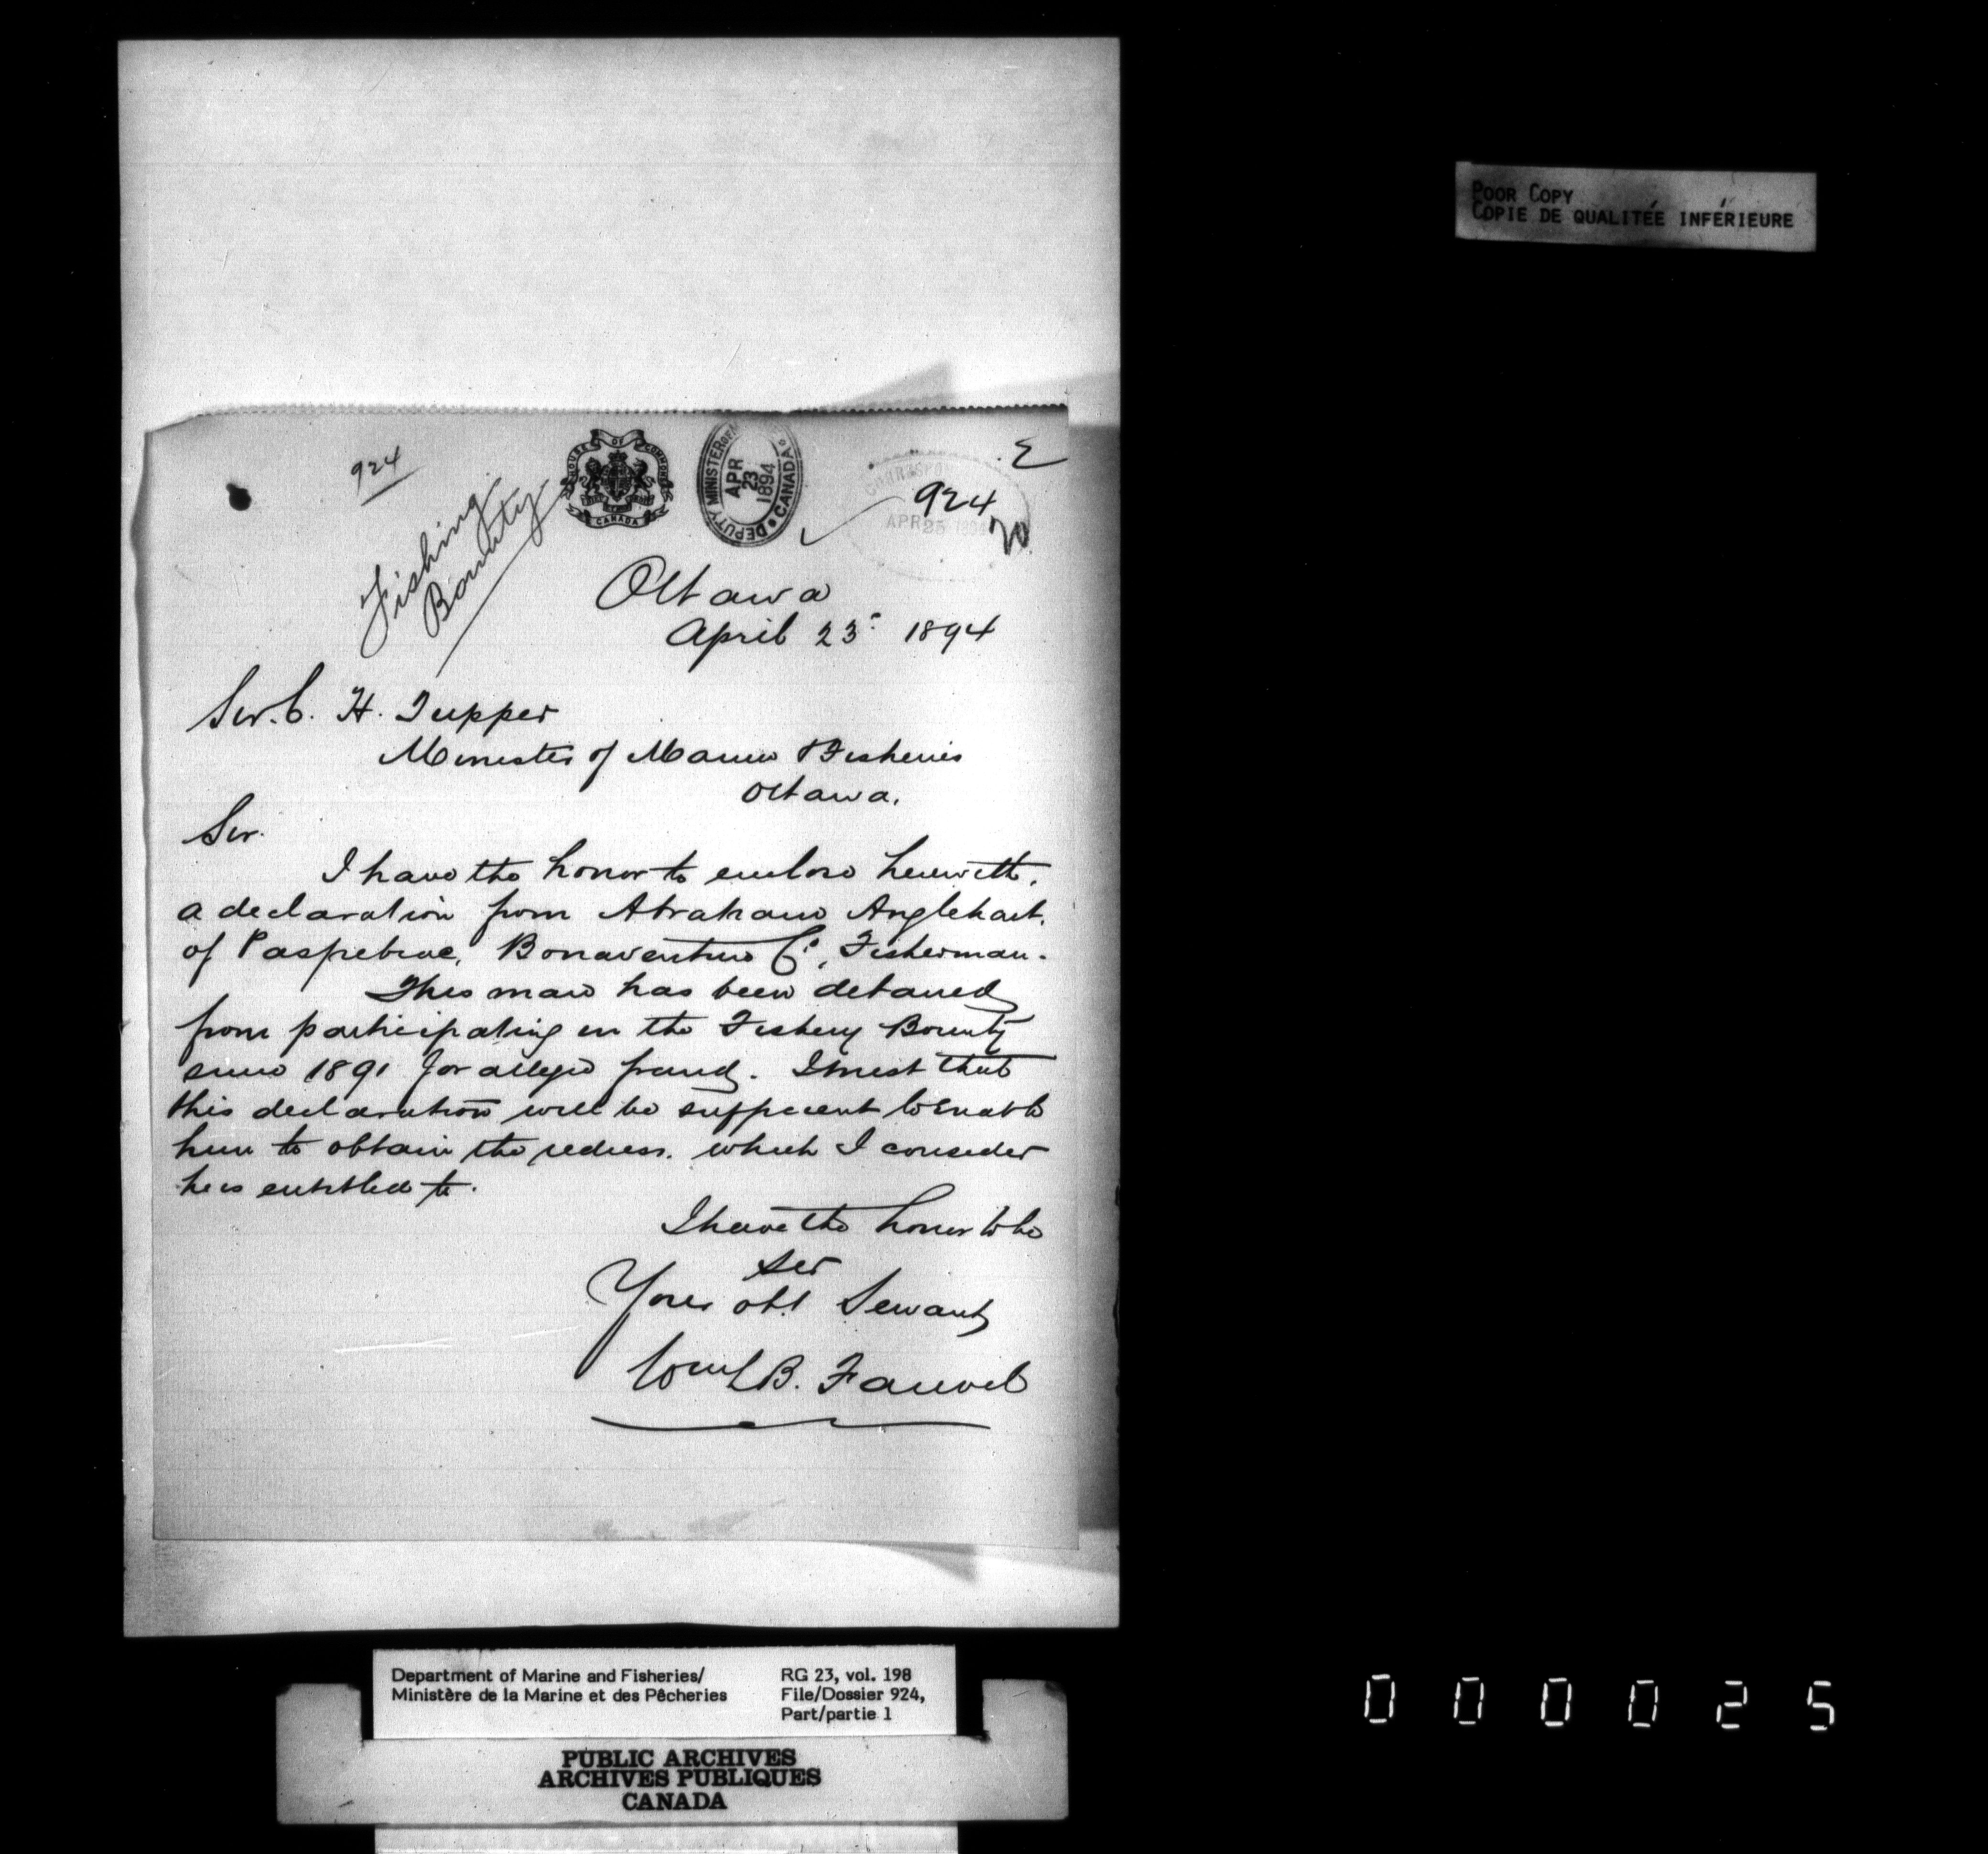 POOR COPY
COPIE DE QUALITÉE INFÉRIEURE
924
Fishing
Bounty
HOUSE OF COMMONS
CANADA
DEPUTY MINISTER OF
APR
23
1894
CANADA
924
APR 25 1894
Ottawa
April 23: 1894
Sir. C. H. Tupper
Minister of Marine & Fisheries
Ottawa.
Sir.
I have the honor to enclose herewith,
a declaration from Abraham Anglehart.
of Paspebiac, Bonaventure Co, Fisherman.
This man has been detained
from participating in the Fishery Bounty
since 1891 for alleged fraud. I trust that
this declaration will be sufficient to enable
him to obtain the redress. which I consider
he is entitled to.
I have the honor to be
Sir
Your obt Servant
Wm L B. Fauvel
Department of Marine and Fisheries/
Ministère de la Marine et des Pêcheries
RG 23, vol. 198
File/Dossier 924,
Part/partie 1
PUBLIC ARCHIVES
ARCHIVES PUBLIQUES
CANADA
000025